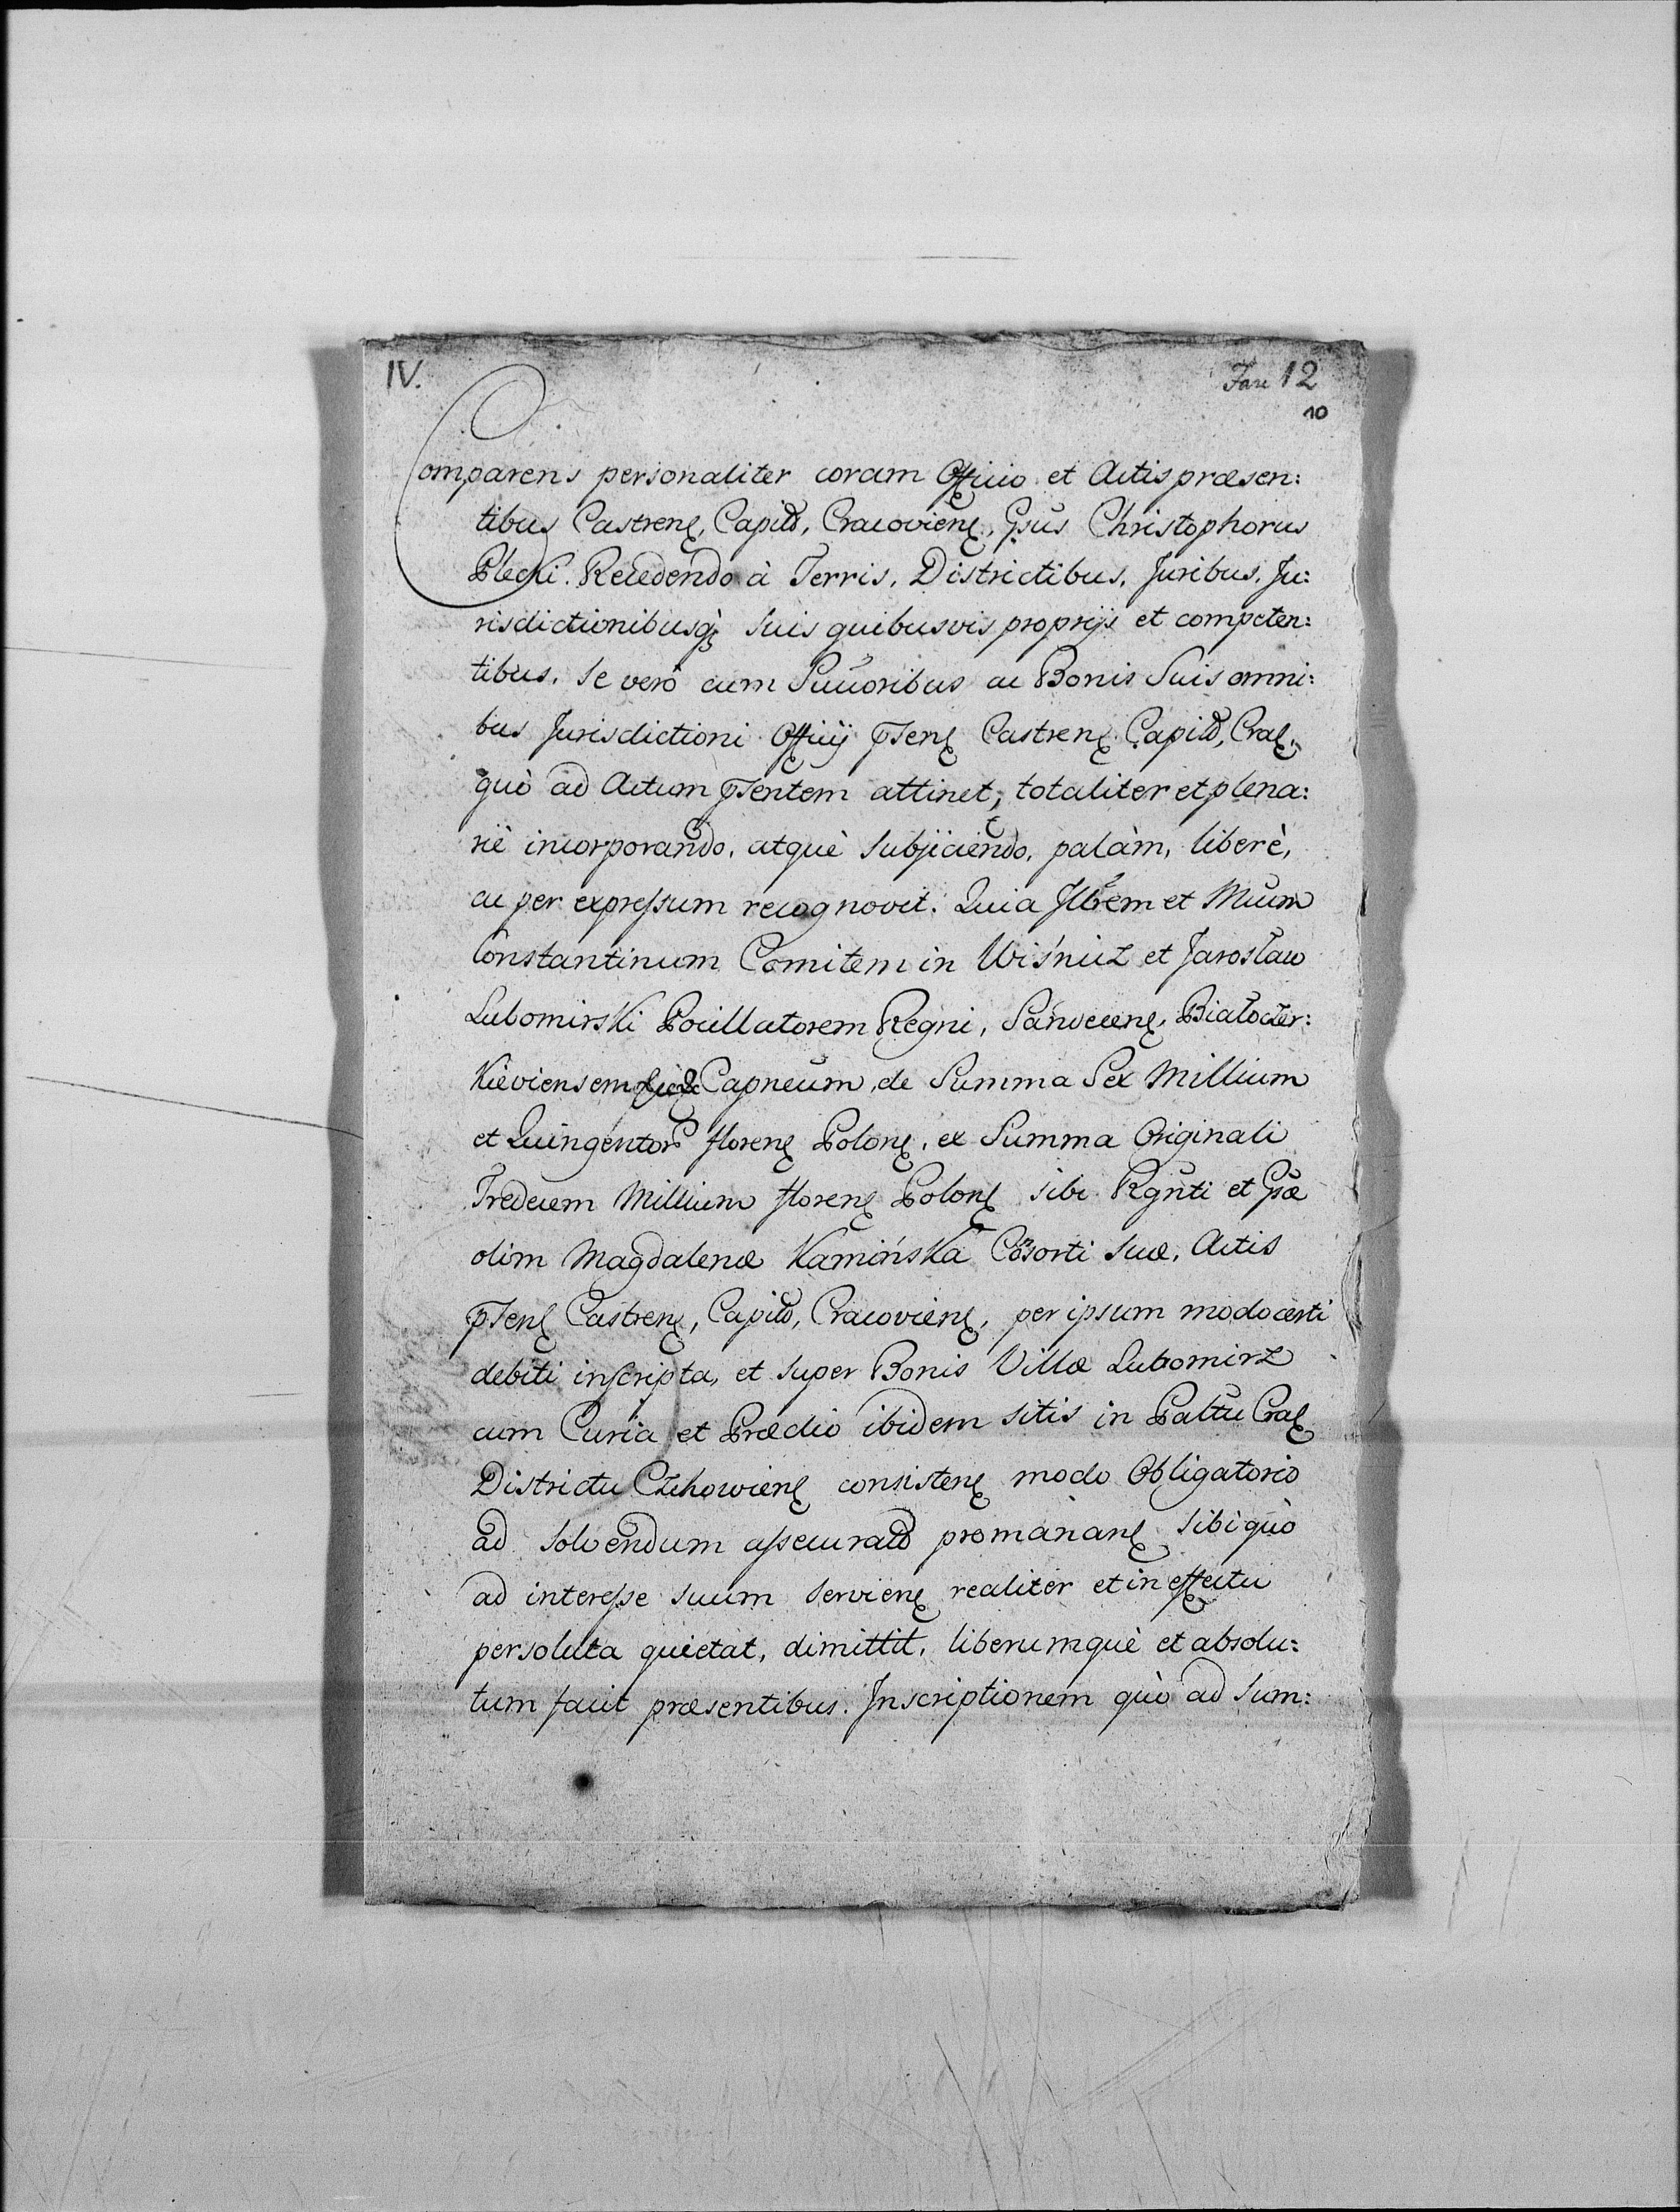 IV.
Fasc 12
10
Comparens personaliter coram Officio et Actis præsen:
tibus Castren, Capitl, Cracovien, Gsus Christophorus
Plecki. Recedendo à Terris, Districtibus, Juribus, Ju:
risdictionibusq; suis quibusvis proprijs et competen:
tibus, se verò cum Succoribus ac Bonis Suis omni:
bus Jurisdictioni Officij pñsen Castren. Capitl, Crac,
quò ad Actum pñsentem attinet, totaliter et plena:
riè incorporando, atquè subjiciendo, palàm, liberè,
ac per expressum recognovit. Quia Illrem et Mcum
Constantinum Comitem in Wiśnicz et Jarosław
Lubomirski Pocillatorem Regni, Sandecen, Białocer:
Kieviensem Capneum, de Summa Sex Millium
et Quingentor floren Polon, ex Summa Originali
Tredecem Millium floren Polon sibi Rgnti et Gsæ
olim Magdalenæ Kamińska Cõsorti suæ, Actis
pñsen Castren, Capitl, Cracovien, per ipsum modo certi
debiti inscripta, et super Bonis Villæ Lubomirz
cum Curia et Prædio ibidem sitis in Paltu Crac
Districtu Czchowien consisten modo Obligatorio
ad solvendum assecurata promanan sibi quò
ad interesse suum servien realiter et in effectu
persoluta quietat, dimittit, liberumquè et absolu:
tum facit præsentibus. Inscriptionem quò ad sum: